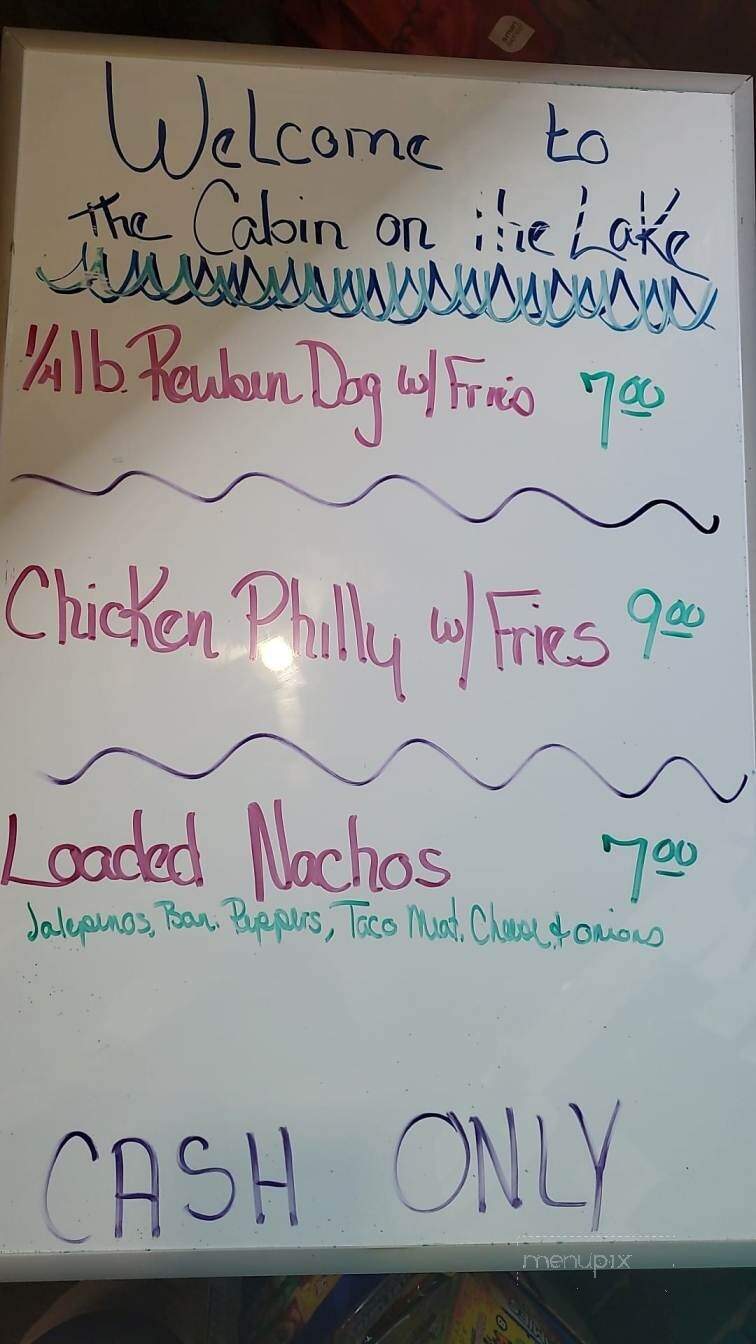 Welcome to
the Cabin on the Lake
1/4 lb. Reuben Dog w/ Fries 7.00
Chicken Philly w/ Fries 9.00
Loaded Nachos 7.00
Jalepenos, Ban. Peppers, Taco Meat, Cheese, & onions
CASH ONLY
menupix